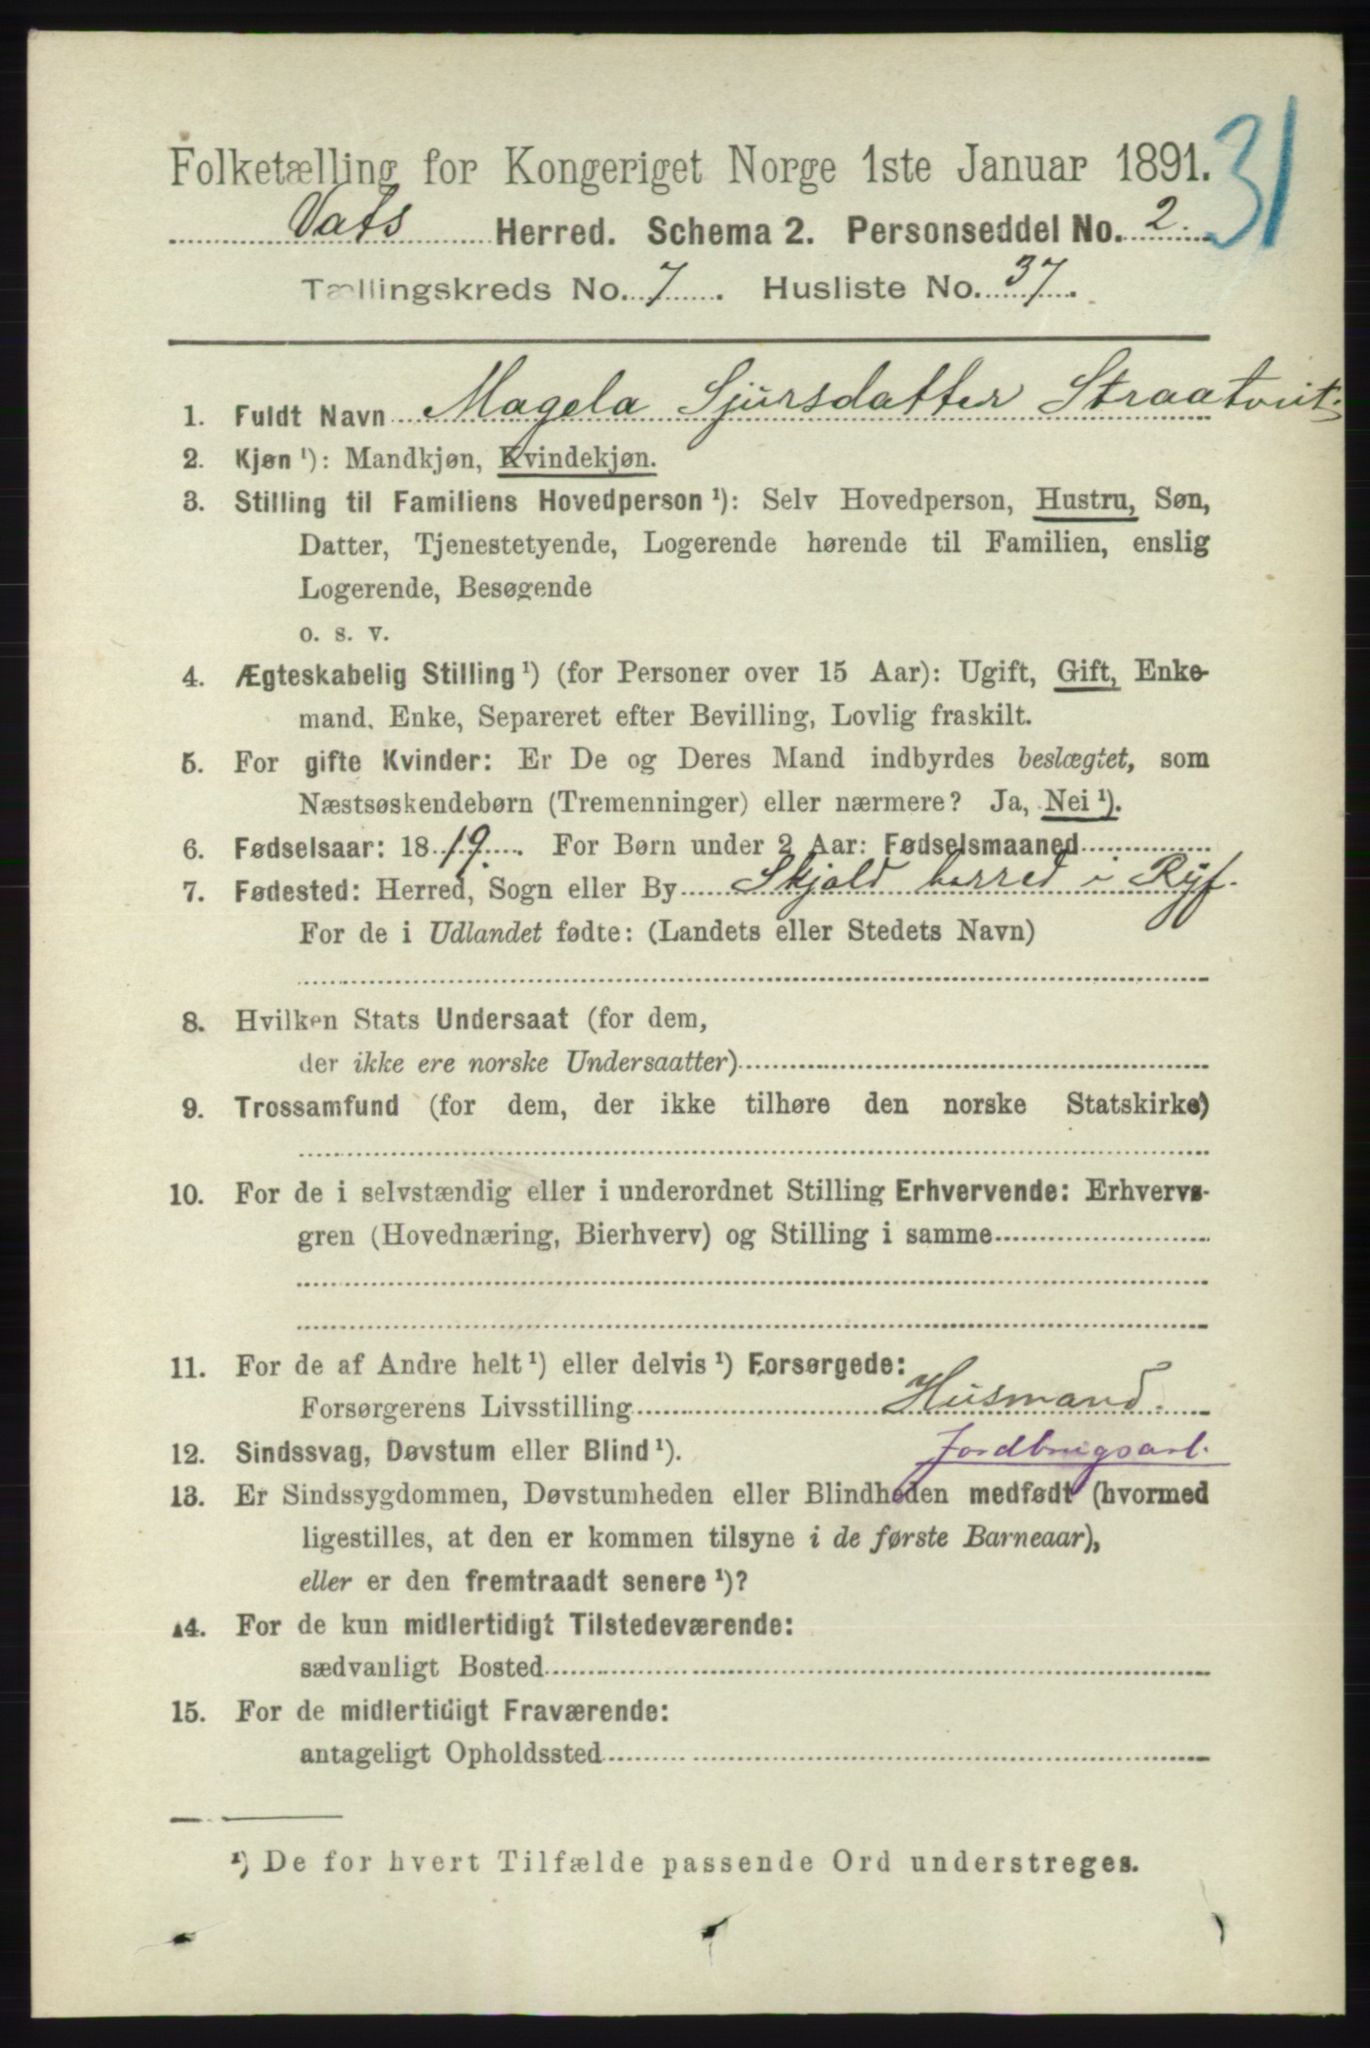 31
Folketælling for Kongeriget Norge 1ste Januar 1891.
Vats Herred. Schema 2. Personseddel No. 2.
Tællingskreds No. 7. Husliste No. 37.
1. Fuldt Navn Magela Sjursdatter Straatveit.
2. Kjøn ¹): Mandkjøn, Kvindekjøn.
3. Stilling til Familiens Hovedperson ¹): Selv Hovedperson, Hustru, Søn,
Datter, Tjenestetyende, Logerende hørende til Familien, enslig
Logerende, Besøgende
o. s. v.
4. Ægteskabelig Stilling ¹) (for Personer over 15 Aar): Ugift, Gift, Enke-
mand, Enke, Separeret efter Bevilling, Lovlig fraskilt.
5. For gifte Kvinder: Er De og Deres Mand indbyrdes beslægtet, som
Næstsøskendebørn (Tremenninger) eller nærmere? Ja, Nei ¹).
6. Fødselsaar: 1819. For Børn under 2 Aar: Fødselsmaaned
7. Fødested: Herred, Sogn eller By Skjold herred i Ryf.
For de i Udlandet fødte: (Landets eller Stedets Navn)
8. Hvilken Stats Undersaat (for dem,
der ikke ere norske Undersaatter)
9. Trossamfund (for dem, der ikke tilhøre den norske Statskirke)
10. For de i selvstændig eller i underordnet Stilling Erhvervende: Erhvervs-
gren (Hovednæring, Bierhverv) og Stilling i samme
11. For de af Andre helt ¹) eller delvis ¹) Forsørgede:
Forsørgerens Livsstilling Husmand.
12. Sindssvag, Døvstum eller Blind ¹). Jordbrugsarb.
13. Er Sindssygdommen, Døvstumheden eller Blindheden medfødt (hvormed
ligestilles, at den er kommen tilsyne i de første Barneaar),
eller er den fremtraadt senere ¹)?
14. For de kun midlertidigt Tilstedeværende:
sædvanligt Bosted
15. For de midlertidigt Fraværende:
antageligt Opholdssted
¹) De for hvert Tilfælde passende Ord understreges.